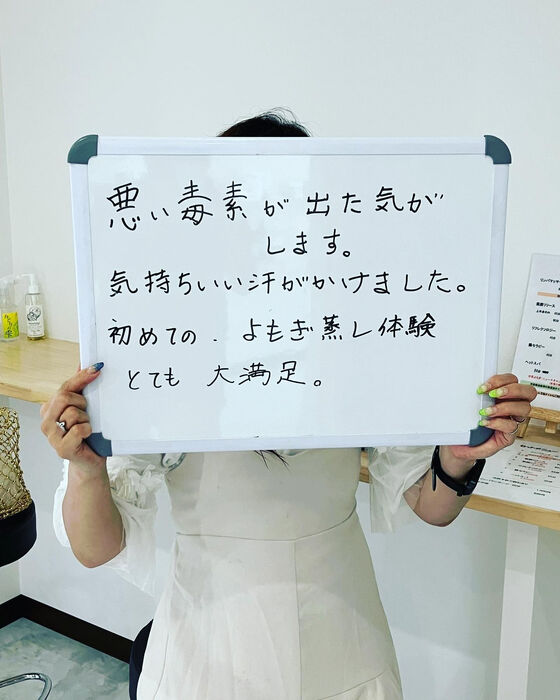 悪い毒素が出た気が
します。
気持ちいい汗がかけました。
初めての、よもぎ蒸し体験
とても 大満足。